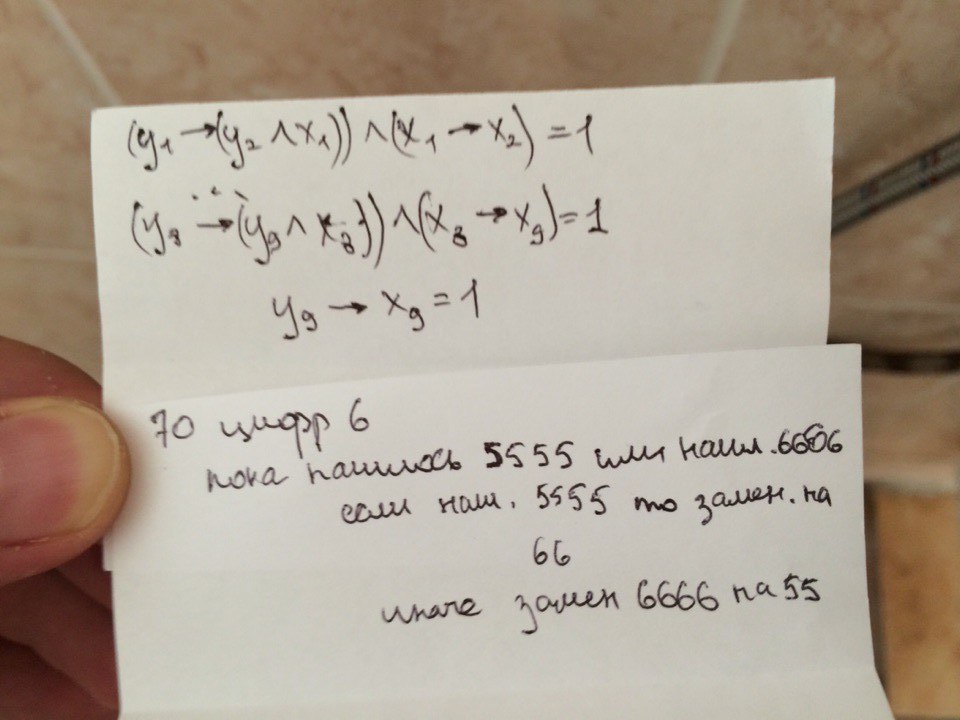 (y₁ → (y₂ ∧ x₁)) ∧ (x₁ → x₂) = 1
...
(y₈ → (y₉ ∧ x₈)) ∧ (x₈ → x₉) = 1
y₉ → x₉ = 1
70 цифр 6
пока нашлось 5555 или нашл. 6666
если наш. 5555 то замен. на
66
иначе замен 6666 на 55